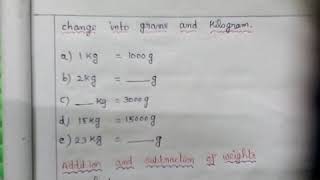 change into grams and kilogram.
a) 1 kg = 1000 g
b) 2 kg = ___ g
c) ___ kg = 3000 g
d) 15 kg = 15000 g
e) 23 kg = ___ g
Addition and subtraction of weights